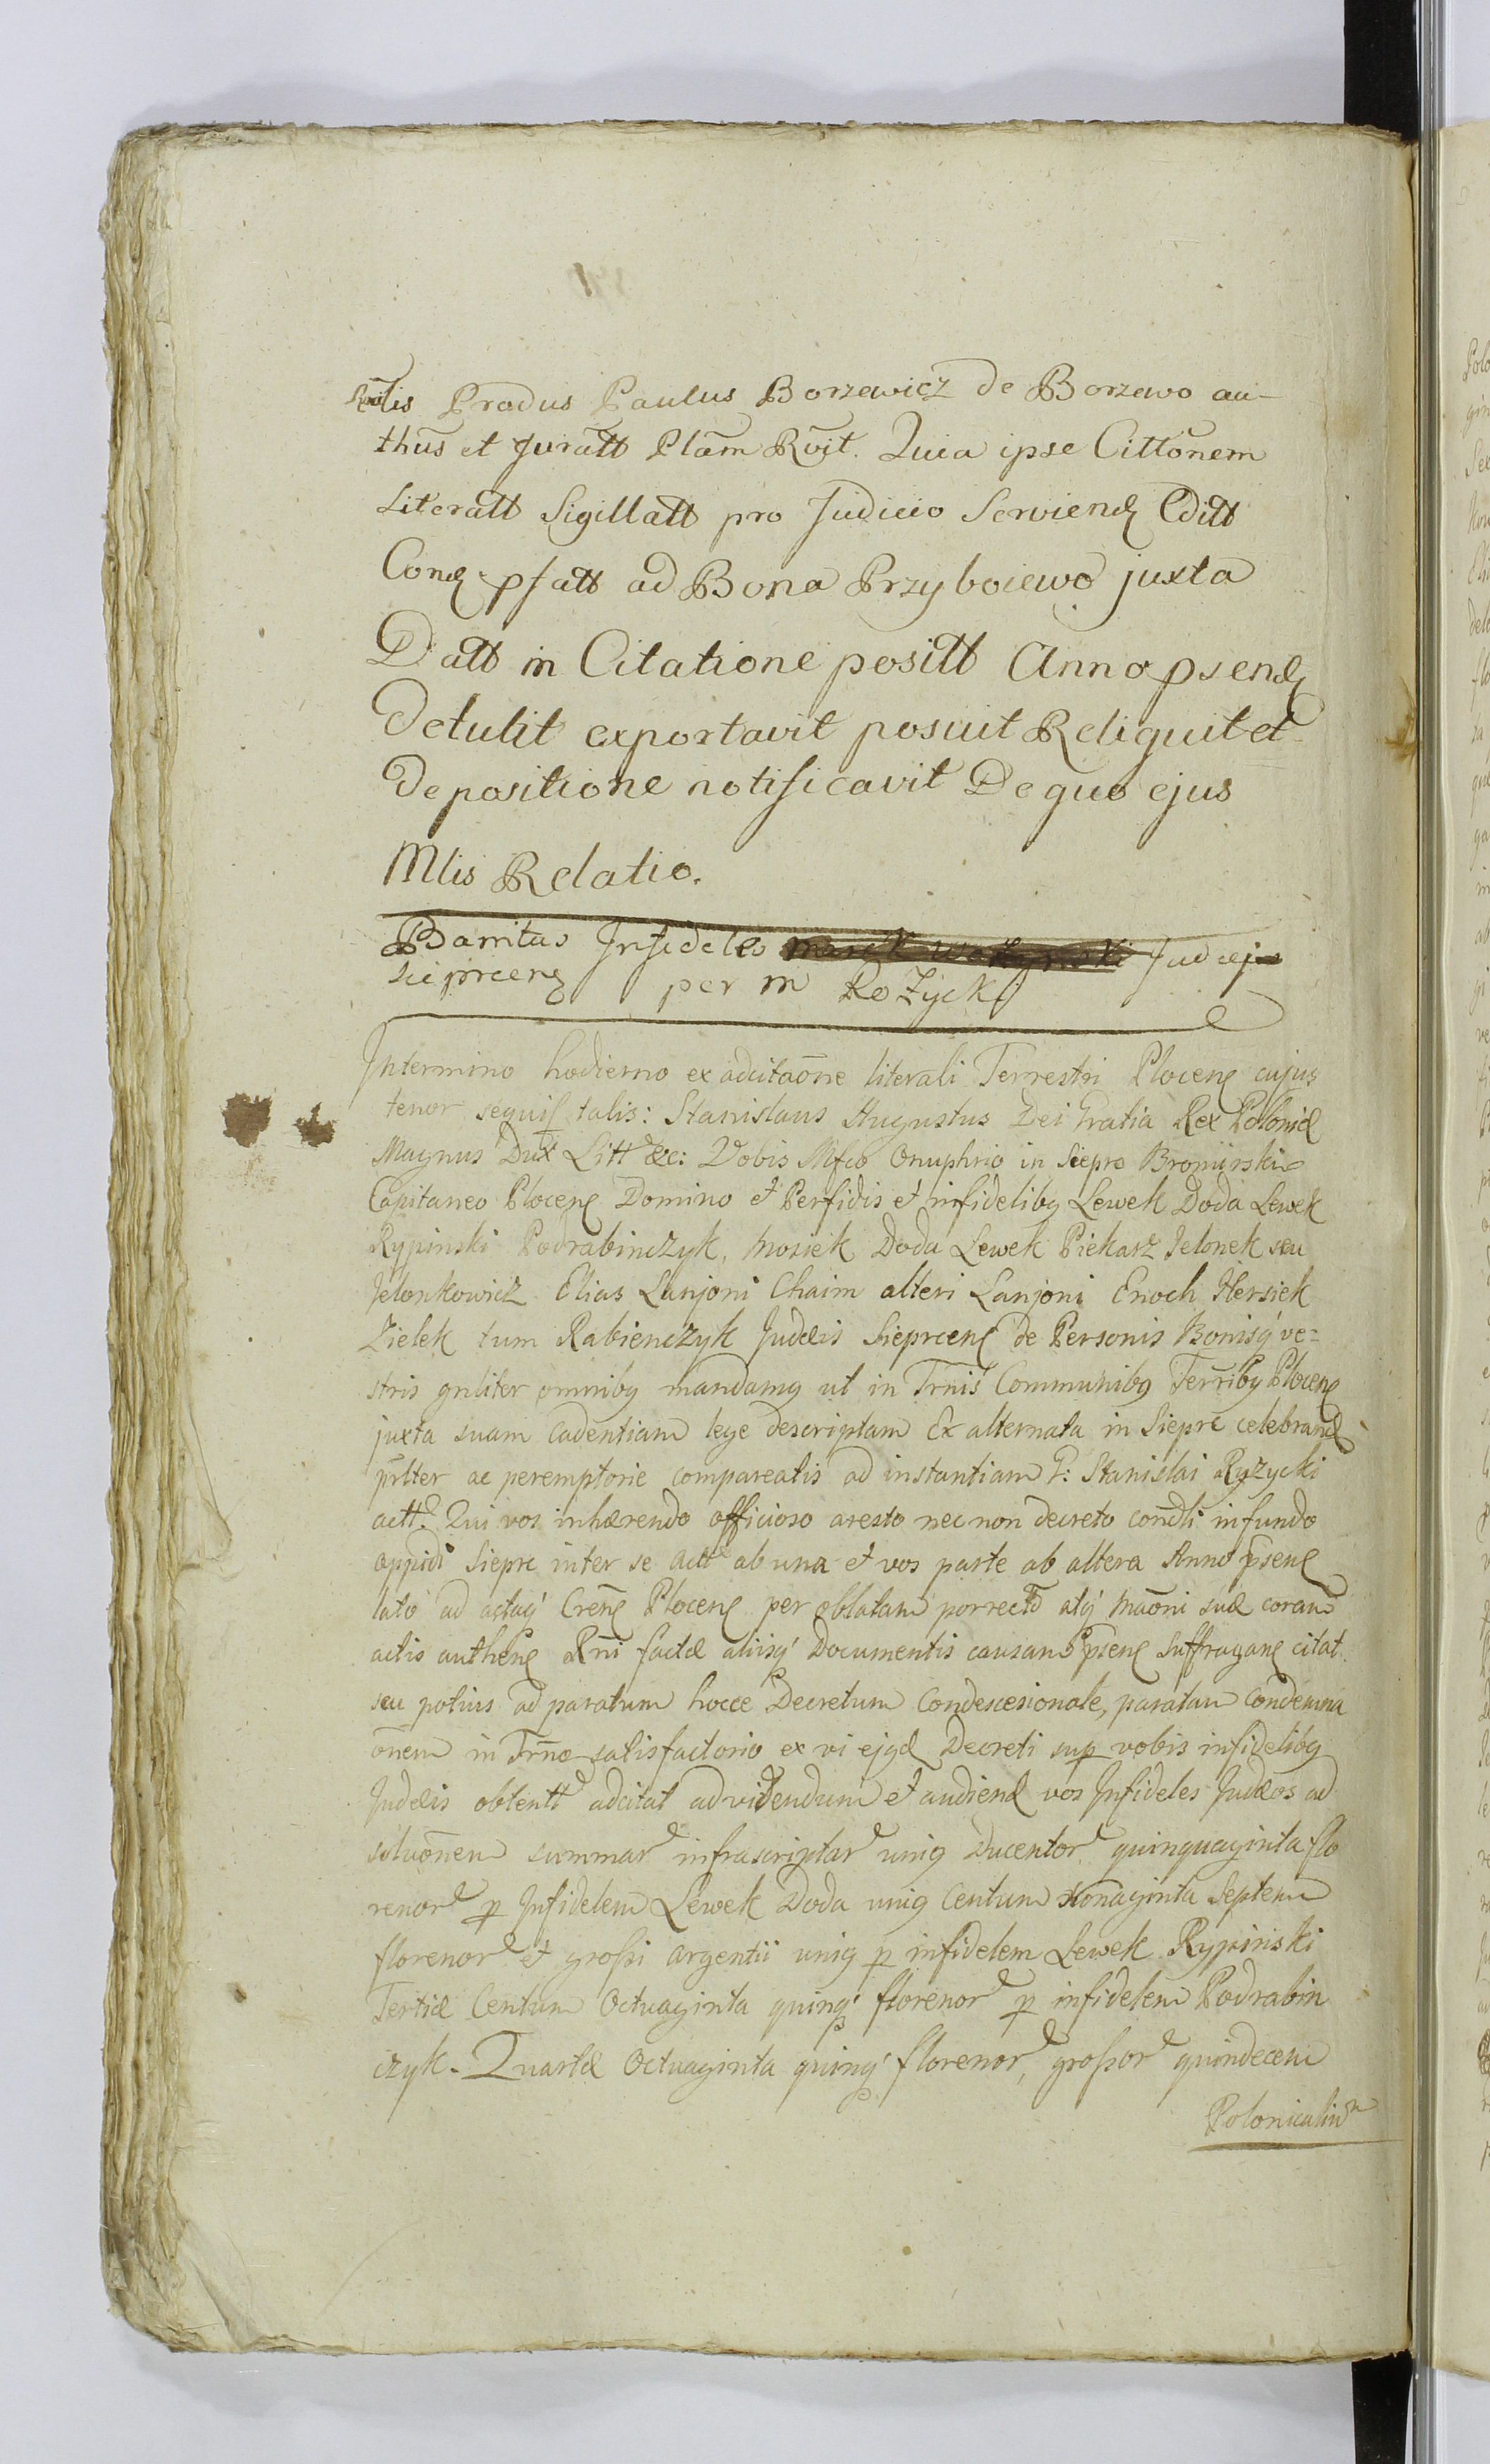 Rndlis Produs Paulus Borzewicz de Borzewo au-
thūs et Juratt Plām Rvit. Quia ipse Cittōnem
Literatt Sigillatt pro Judicio Serviend Editt
Cond psatt ad Bona Przyboiewo juxta
Datt in Citatione positt Anno psend
detulit exportavit posuit Reliquit et
de positione notificavit De quo ejus
Mlis Relatio.
Banitus Infideles Judaejs
Sieprcens per M Rożycki
In termino hodierno ex adcitaōne literali Terrestri Plocens cujus
tenor sequit talis: Stanislaus Augustus Dei Gratia Rex Poloniæ
Magnus Dux Litt &c: Vobis Mfco Onuphrio in Siepre Bromirski
Capitaneo Plocens Domino et Perfidis et infidelibg Lewek Doda Lewek
Rypinski Podrabinczyk, Mosiek Doda Lewek Piekarz Jelonek seu
Jelonkowicz Elias Lanjoni Chaim alteri Lanjoni Enoch Hersiek
Zielek tum Rabienczyk Judæis Sieprcens de Personis Bonisq́ ve=
stris gnliter omnibg mandamg ut in Trnis Communibg Terribg Plocens
juxta suam cadentiam lege descriptam & alternata in Siepre celebrand
pnlter ac peremptorie compareatis ad instantiam G: Stanislai Ryzycki
actt. Qui vos inhærendo officioso aresto nec non decreto condli in fundo
oppidi Siepre inter se actt ab una et vos parte ab altera Anno psens
lato ad actaq́ Crens Plocens per oblatam porrecto atq́ maōni suæ coram
actis authens Rni factæ aliisq́ Documentis causam psens suffragans citat
seu potius ad paratum hocce Decretum Condescesionale, paratam Condemna
ōnem in Trno satisfactorio ex vi ejgd Decreti sup vobis infidelibg
Judæis obtentt adcitat ad videndum et audiend vos Infideles Judæos ad
soluōnem summar infrascriptar unig Ducentor quinquaginta flo
renor p Infidelem Lewek Doda unig Centum Nonaginta Septem
florenor et grossi argentii unig p infidelem Lewek Rypinski
Tertiæ Centum Octuaginta quinq́ florenor p infidelem Podrabin
czyk. Quartæ Octuaginta quinq́ florenor, grossor quindecem
Polonicaliu͞m